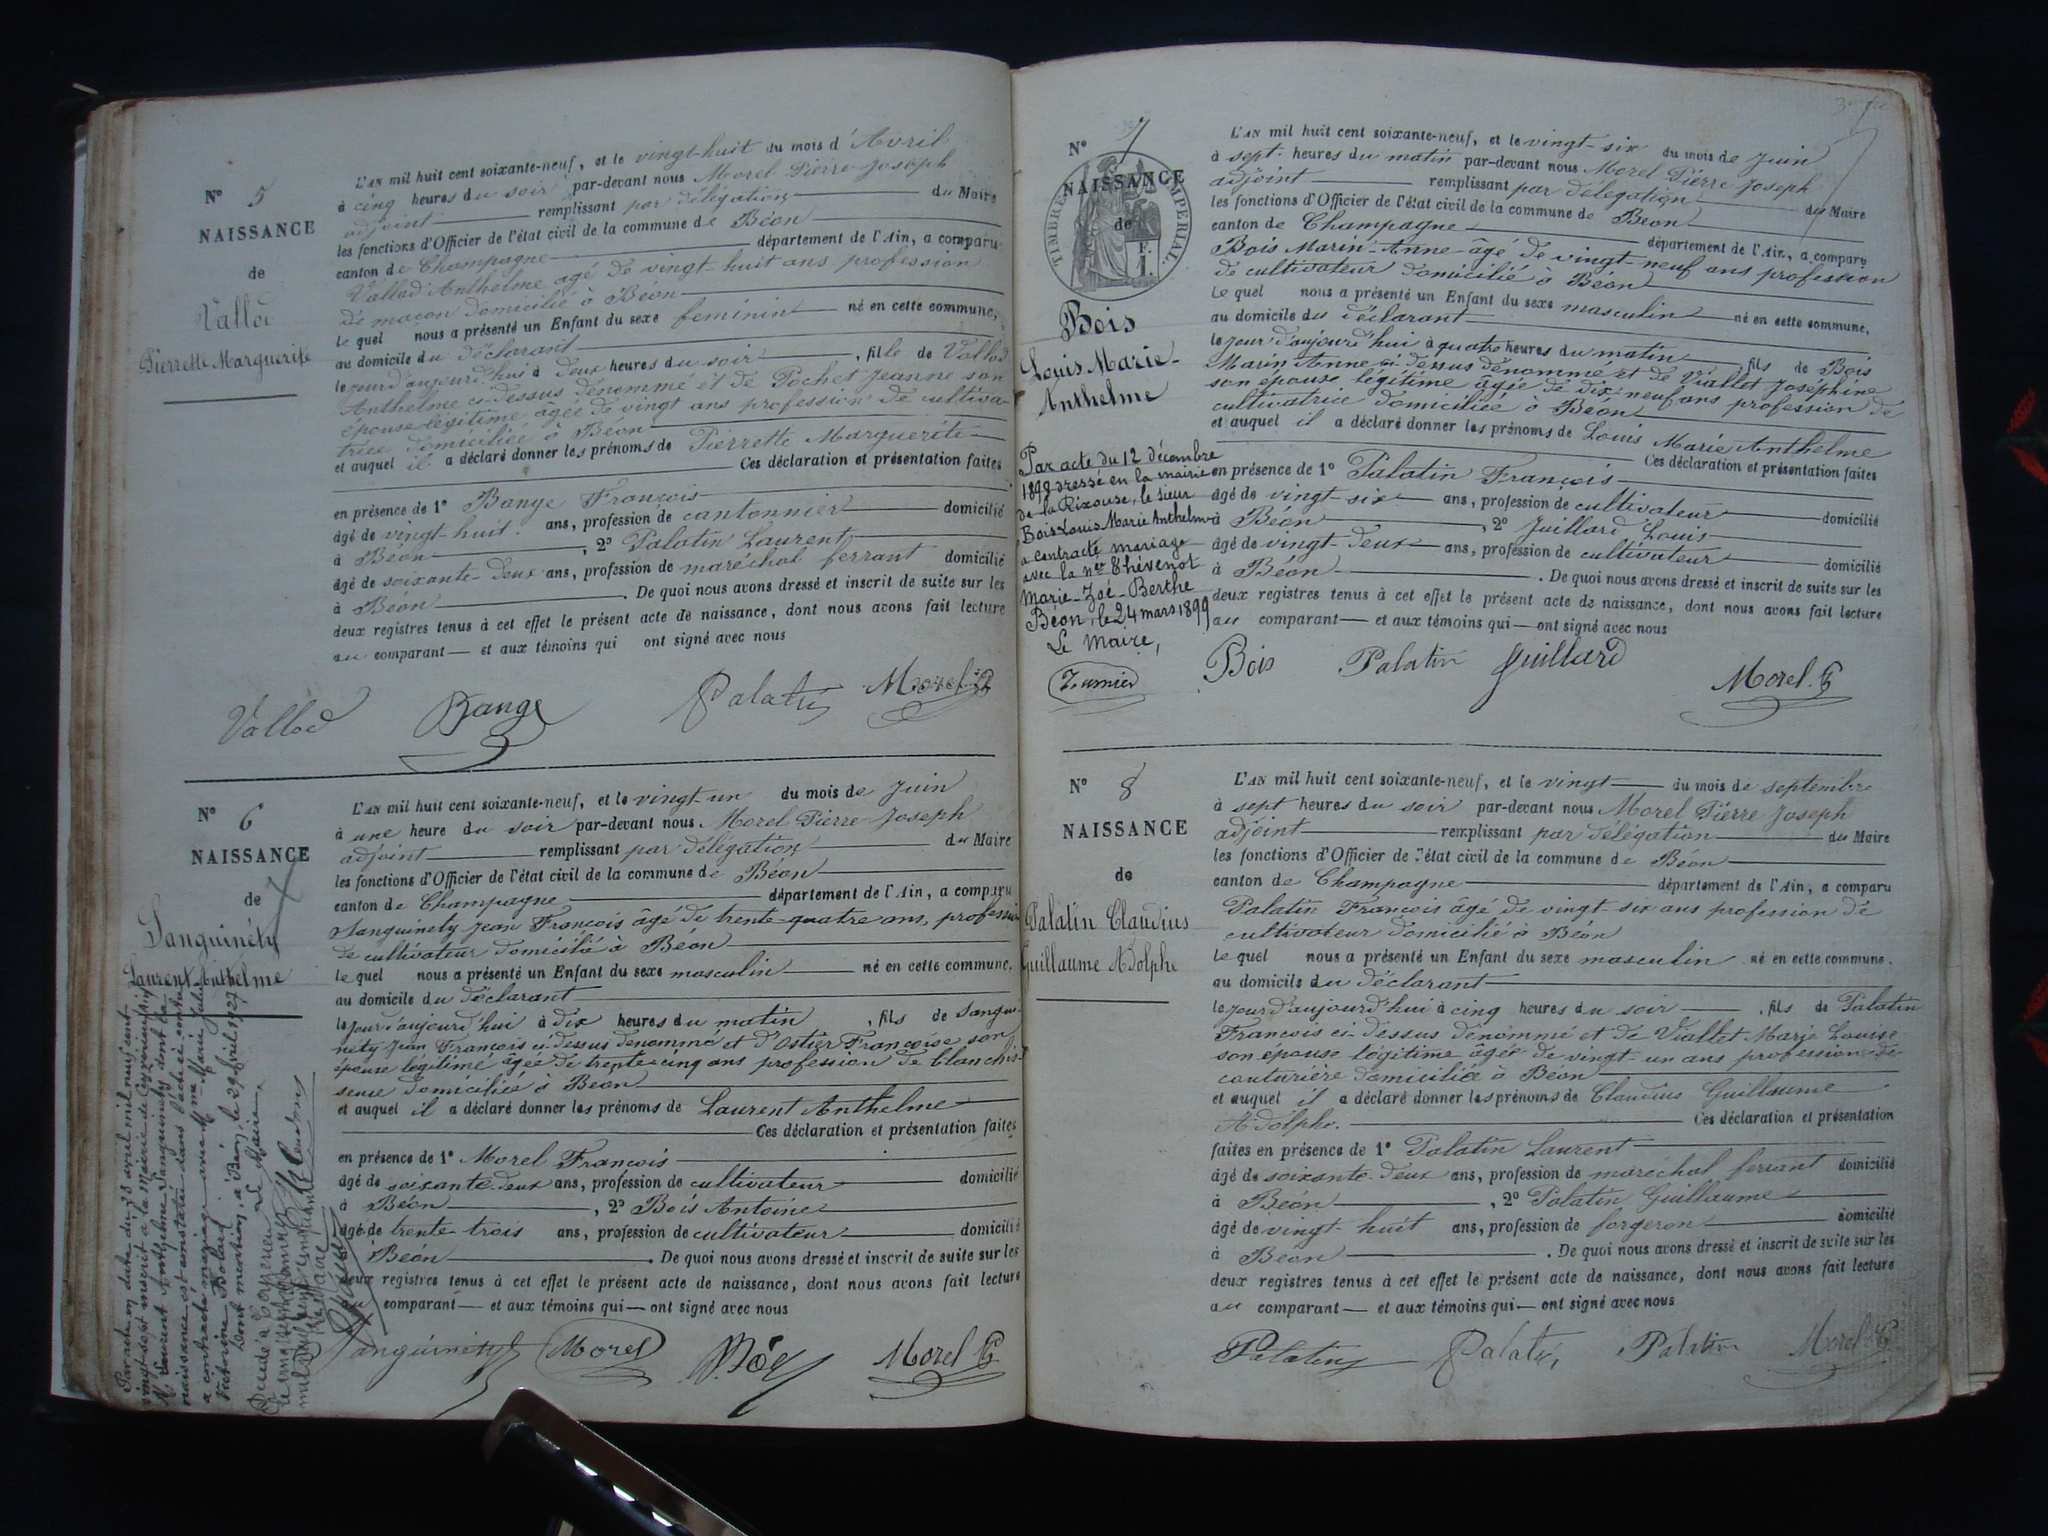 L'AN mil huit cent soixante-neuf, et le vingt-huit du mois d'Avril
à cinq heures du soir par-devant nous Morel Pierre Joseph
adjoint remplissant par délégation du Maire
les fonctions d'Officier de l'état civil de la commune de Béon
canton de Champagne département de l'Ain, a comparu
Vallod Anthelme agé de vingt-huit ans profession
de maçon domicilié à Béon
le quel nous a présenté un Enfant du sexe feminin né en cette commune,
au domicile du déclarant
le jour d'aujourd'hui à deux heures du soir, fille de Vallod
Anthelme ci-dessus dénommé et de Pochet Jeanne son
épouse légitime agée de vingt ans profession de cultiva-
trice domiciliée à Béon
et auquel il a déclaré donner les prénoms de Pierrette Marguerite
Ces déclaration et présentation faites
en présence de 1° Bange François
âgé de vingt-huit ans, profession de cantonnier domicilié
à Béon, 2° Palatin Laurent
âgé de soixante-deux ans, profession de maréchal ferrant domicilié
à Béon. De quoi nous avons dressé et inscrit de suite sur les
deux registres tenus à cet effet le présent acte de naissance, dont nous avons fait lecture
au comparant et aux témoins qui ont signé avec nous
N° 5
NAISSANCE
de
Vallod
Pierrette Marguerite
Vallod Bange Palatin Morel P
N° 6
NAISSANCE
de
Sanguinéty
Laurent Anthelme
L'AN mil huit cent soixante-neuf, et le vingt-un du mois de Juin
à une heure du soir par-devant nous Morel Pierre Joseph
adjoint remplissant par délégation du Maire
les fonctions d'Officier de l'état civil de la commune de Béon
canton de Champagne département de l'Ain, a comparu
Sanguinety Jean François âgé de trente-quatre ans, profession
de cultivateur domicilié à Béon
le quel nous a présenté un Enfant du sexe masculin né en cette commune.
au domicile du déclarant
le jour d'aujourd'hui à dix heures du matin, fils de Sangui-
nety Jean François ci-dessus dénommé et d'Ostier Françoise son
épouse légitime âgée de trente-cinq ans profession de blanchis-
seuse domiciliée à Béon
et auquel il a déclaré donner les prénoms de Laurent Anthelme
Ces déclaration et présentation faites
en présence de 1° Morel François
âgé de soixante-deux ans, profession de cultivateur domicilié
à Béon, 2° Bois Antoine
âgé de trente trois ans, profession de cultivateur domicilié
à Béon. De quoi nous avons dressé et inscrit de suite sur les
deux registres tenus à cet effet le présent acte de naissance, dont nous avons fait lecture
au comparant et aux témoins qui ont signé avec nous
Par acte en date du 23 avril mil neuf cent
vingt-sept inscrit à la Mairie de Ceyzerieu
M. Laurent Anthelme Sanguinéty dont la
naissance est constatée dans l'acte ci-contre
a contracté mariage avec Mme Marie Julie
Victorine Bolard
Dont mention, à Béon, le 29 Avril 1927
Le Maire
Décédé à Ceyzerieu
Sanguinéty Morel Morel P
N° 7
NAISSANCE
de
TIMBRE IMPERIAL
1 F.
Bois
Louis Marie-
Anthelme
Par acte du 12 décembre
1898 dressé en la mairie
de la Rixouse, le sieur
Bois Louis Marie Anthelme
a contracté mariage
avec la nee Thévenot
Marie-Zoé-Berthe
Béon, le 24 mars 1899
Le Maire,
L'AN mil huit cent soixante-neuf, et le vingt-six du mois de Juin
à sept heures du matin par-devant nous Morel Pierre Joseph
adjoint remplissant par délégation du Maire
les fonctions d'Officier de l'état civil de la commune de Béon
canton de Champagne département de l'Ain, a comparu
Bois Marin-Anne âgé de vingt-neuf ans profession
de cultivateur domicilié à Béon
le quel nous a présenté un Enfant du sexe masculin né en cette commune,
au domicile du déclarant
le jour d'aujourd'hui à quatre heures du matin fils de Bois
Marin Anne ci-dessus dénommé et de Viallet Joséphine
son épouse légitime âgée de dix-neuf ans profession de
cultivatrice domiciliée à Béon
et auquel il a déclaré donner les prénoms de Louis Marie Anthelme
Ces déclaration et présentation faites
en présence de 1° Palatin François
âgé de vingt-six ans, profession de cultivateur domicilié
à Béon, 2° Juillard Louis
âgé de vingt-deux ans, profession de cultivateur domicilié
à Béon. De quoi nous avons dressé et inscrit de suite sur les
deux registres tenus à cet effet le présent acte de naissance, dont nous avons fait lecture
au comparant et aux témoins qui ont signé avec nous
Bois Palatin Juillard Morel P
N° 8
NAISSANCE
de
Palatin Claudius
Guillaume Adolphe
L'AN mil huit cent soixante-neuf, et le vingt du mois de septembre
à sept heures du soir par-devant nous Morel Pierre Joseph
adjoint remplissant par délégation du Maire
les fonctions d'Officier de l'état civil de la commune de Béon
canton de Champagne département de l'Ain, a comparu
Palatin François âgé de vingt-six ans profession de
cultivateur domicilié à Béon
le quel nous a présenté un Enfant du sexe masculin né en cette commune.
au domicile du déclarant
le jour d'aujourd'hui à cinq heures du soir, fils de Palatin
François ci-dessus dénommé et de Viallet Marie Louise
son épouse légitime âgée de vingt-un ans profession de
couturière domiciliée à Béon
et auquel il a déclaré donner les prénoms de Claudius Guillaume
Adolphe. Ces déclaration et présentation
faites en présence de 1° Palatin Laurent
âgé de soixante-deux ans, profession de maréchal ferrant domicilié
à Béon, 2° Palatin Guillaume
âgé de vingt-huit ans, profession de forgeron domicilié
à Béon. De quoi nous avons dressé et inscrit de suite sur les
deux registres tenus à cet effet le présent acte de naissance, dont nous avons fait lecture
au comparant et aux témoins qui ont signé avec nous
Palatin Palatin Palatin Morel P